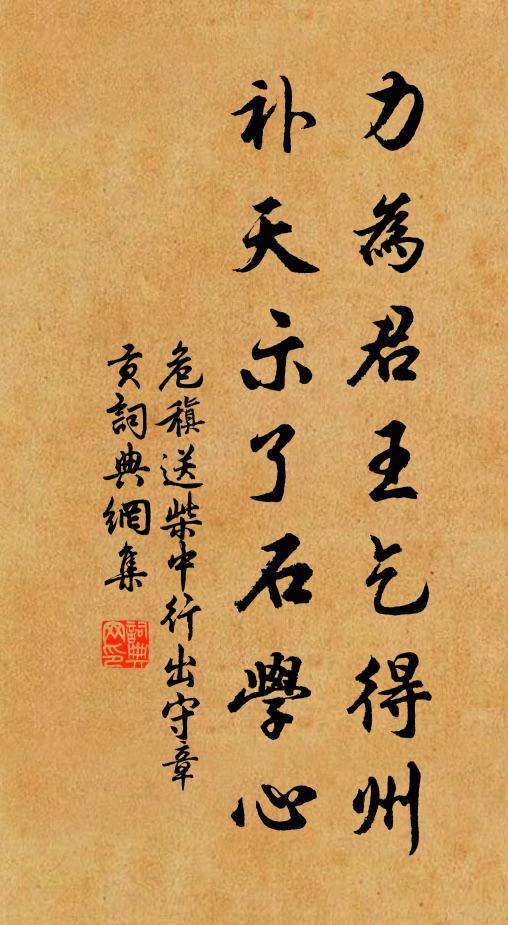 力為君王乞得州
补天示了石學心
危稹送柴中行出守章
贡詞典網集
詞典
网印